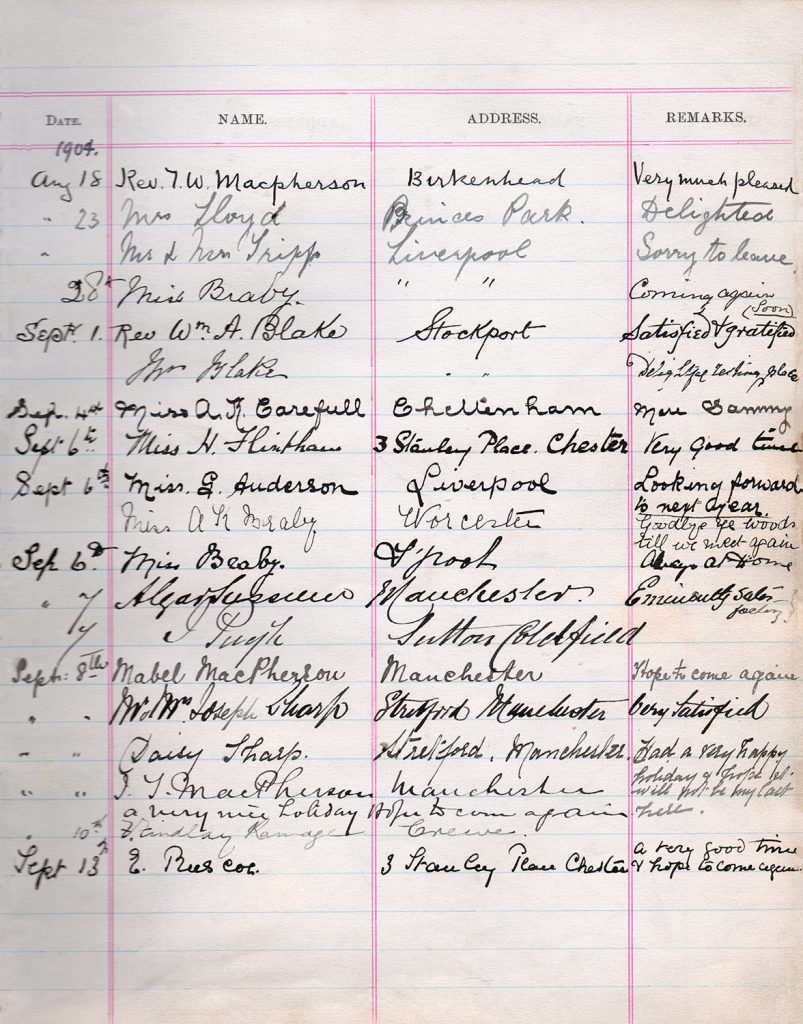 DATE. NAME. ADDRESS. REMARKS.
1904.
Aug 18 Rev. T. W. Macpherson Birkenhead Very much pleased
" 23 Mrs Lloyd Princes Park. Delighted
" Mr & Mrs Tripp Liverpool Sorry to leave
28th Miss Braby. " " Coming again
(Soon)
Sept. 1. Rev Wm. A. Blake Stockport Satisfied & gratified
Mrs Blake " " Delightful resting place
Sep. 4th Miss A. K. Carefull Cheltenham More
Sept 6th Miss H. Flintham 3 Stanley Place. Chester Very Good time
Sept 6th Miss. G. Anderson Liverpool Looking forward
to next year.
Miss A K Braby Worcester Goodbye ye woods
till we meet again
Sep 6th Miss Braby. L'pool Always at Home
" 7 Manchester. Eminently satis-
factory
7 Pugh Sutton Coldfield
Sept: 8th Mabel MacPherson Manchester Hope to come again
" " Mr & Mrs Joseph Sharp Stretford Manchester Very Satisfied
" " Daisy Sharp. Stretford. Manchester. Had a very happy
holiday & hope it
" " J. T. MacPherson Manchester will not be my last
a very nice holiday Hope to come again here.
" 10th Findlay Ramage Crewe.
a very good time
Sept 13th E. Ruscoe. 3 Stanley Place Chester & hope to come again.